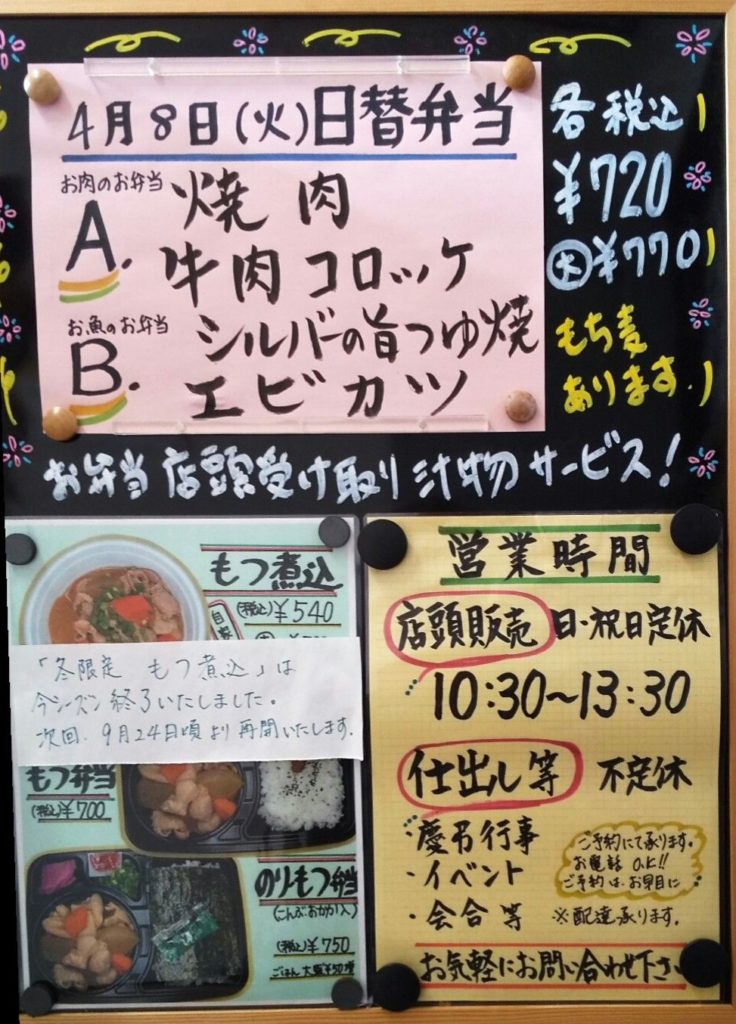 4月8日(火)日替弁当
お肉のお弁当
A. 焼肉
牛肉コロッケ
お魚のお弁当
B. シルバーの旨つゆ焼
エビカツ
各税込
¥720
大¥770
もち麦
あります。
お弁当店頭受け取り汁物サービス!
もつ煮込
(税込)¥540
「冬限定 もつ煮込」は
今シーズン終了いたしました。
次回、9月24日頃より再開いたします。
もつ弁当
(税込)¥700
のりもつ弁当
(こんぶ、おかか入)
(税込)¥750
ごはん大盛¥50増
営業時間
店頭販売 日・祝日定休
10:30~13:30
仕出し等 不定休
・慶弔行事
・イベント
・会合等
ご予約にて承ります。
お電話OK!!
ご予約はお早目に
※配達承ります。
お気軽にお問い合わせ下さい